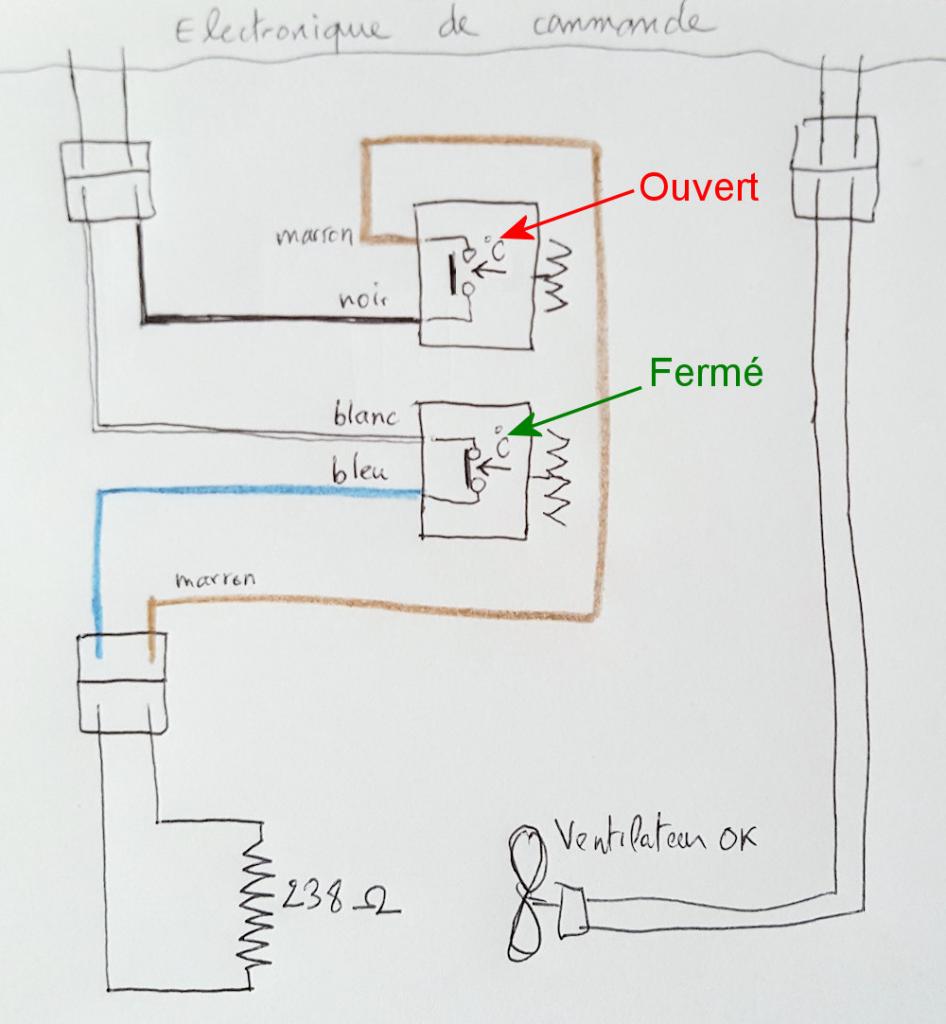 Electronique de commande
Ouvert
marron
°C
noir
Fermé
blanc
°C
bleu
marron
Ventilateur OK
238 Ω